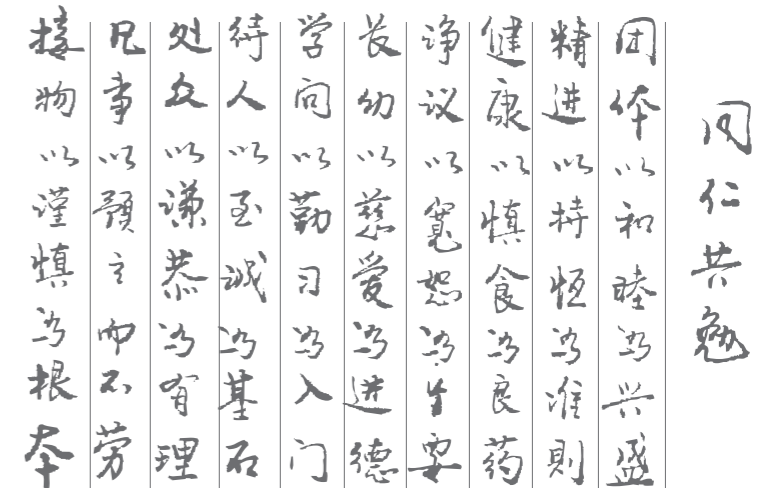 同仁共勉
团体以和睦为兴盛
精进以持恒为准則
健康以慎食为良药
诤议以寬恕为主要
长幼以慈爱为进德
学问以勤习为入门
待人以至诚为基石
处众以谦恭为有理
凡事以預立而不劳
接物以谨慎为根本